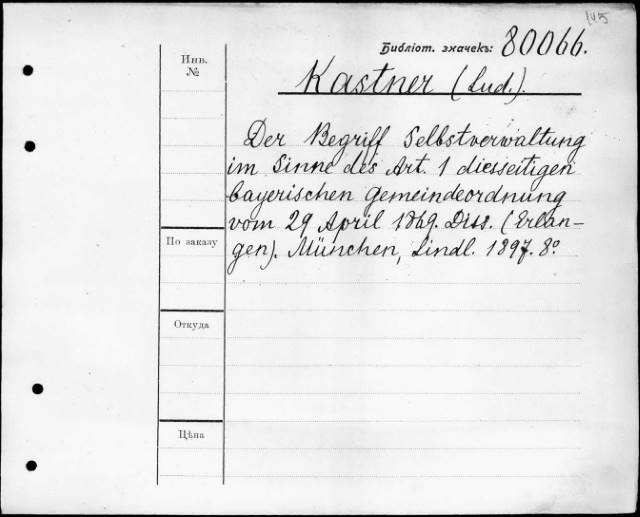 145
Библіот. значекъ: 80066.
Инв.
№
Kastner (Lud.).
Der Begriff Selbstverwaltung
im Sinne des Art. 1 diesseitigen
bayerischen Gemeindeordnung
vom 29 April 1869. Diss. (Erlan-
gen). München, Lindl. 1897. 8°.
По заказу
Откуда
Цѣна